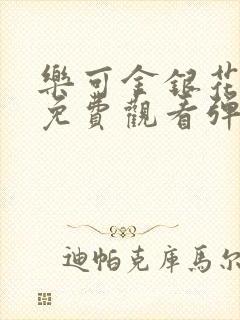 樂可金銀花
免費觀看彈
迪帕克庫馬尔